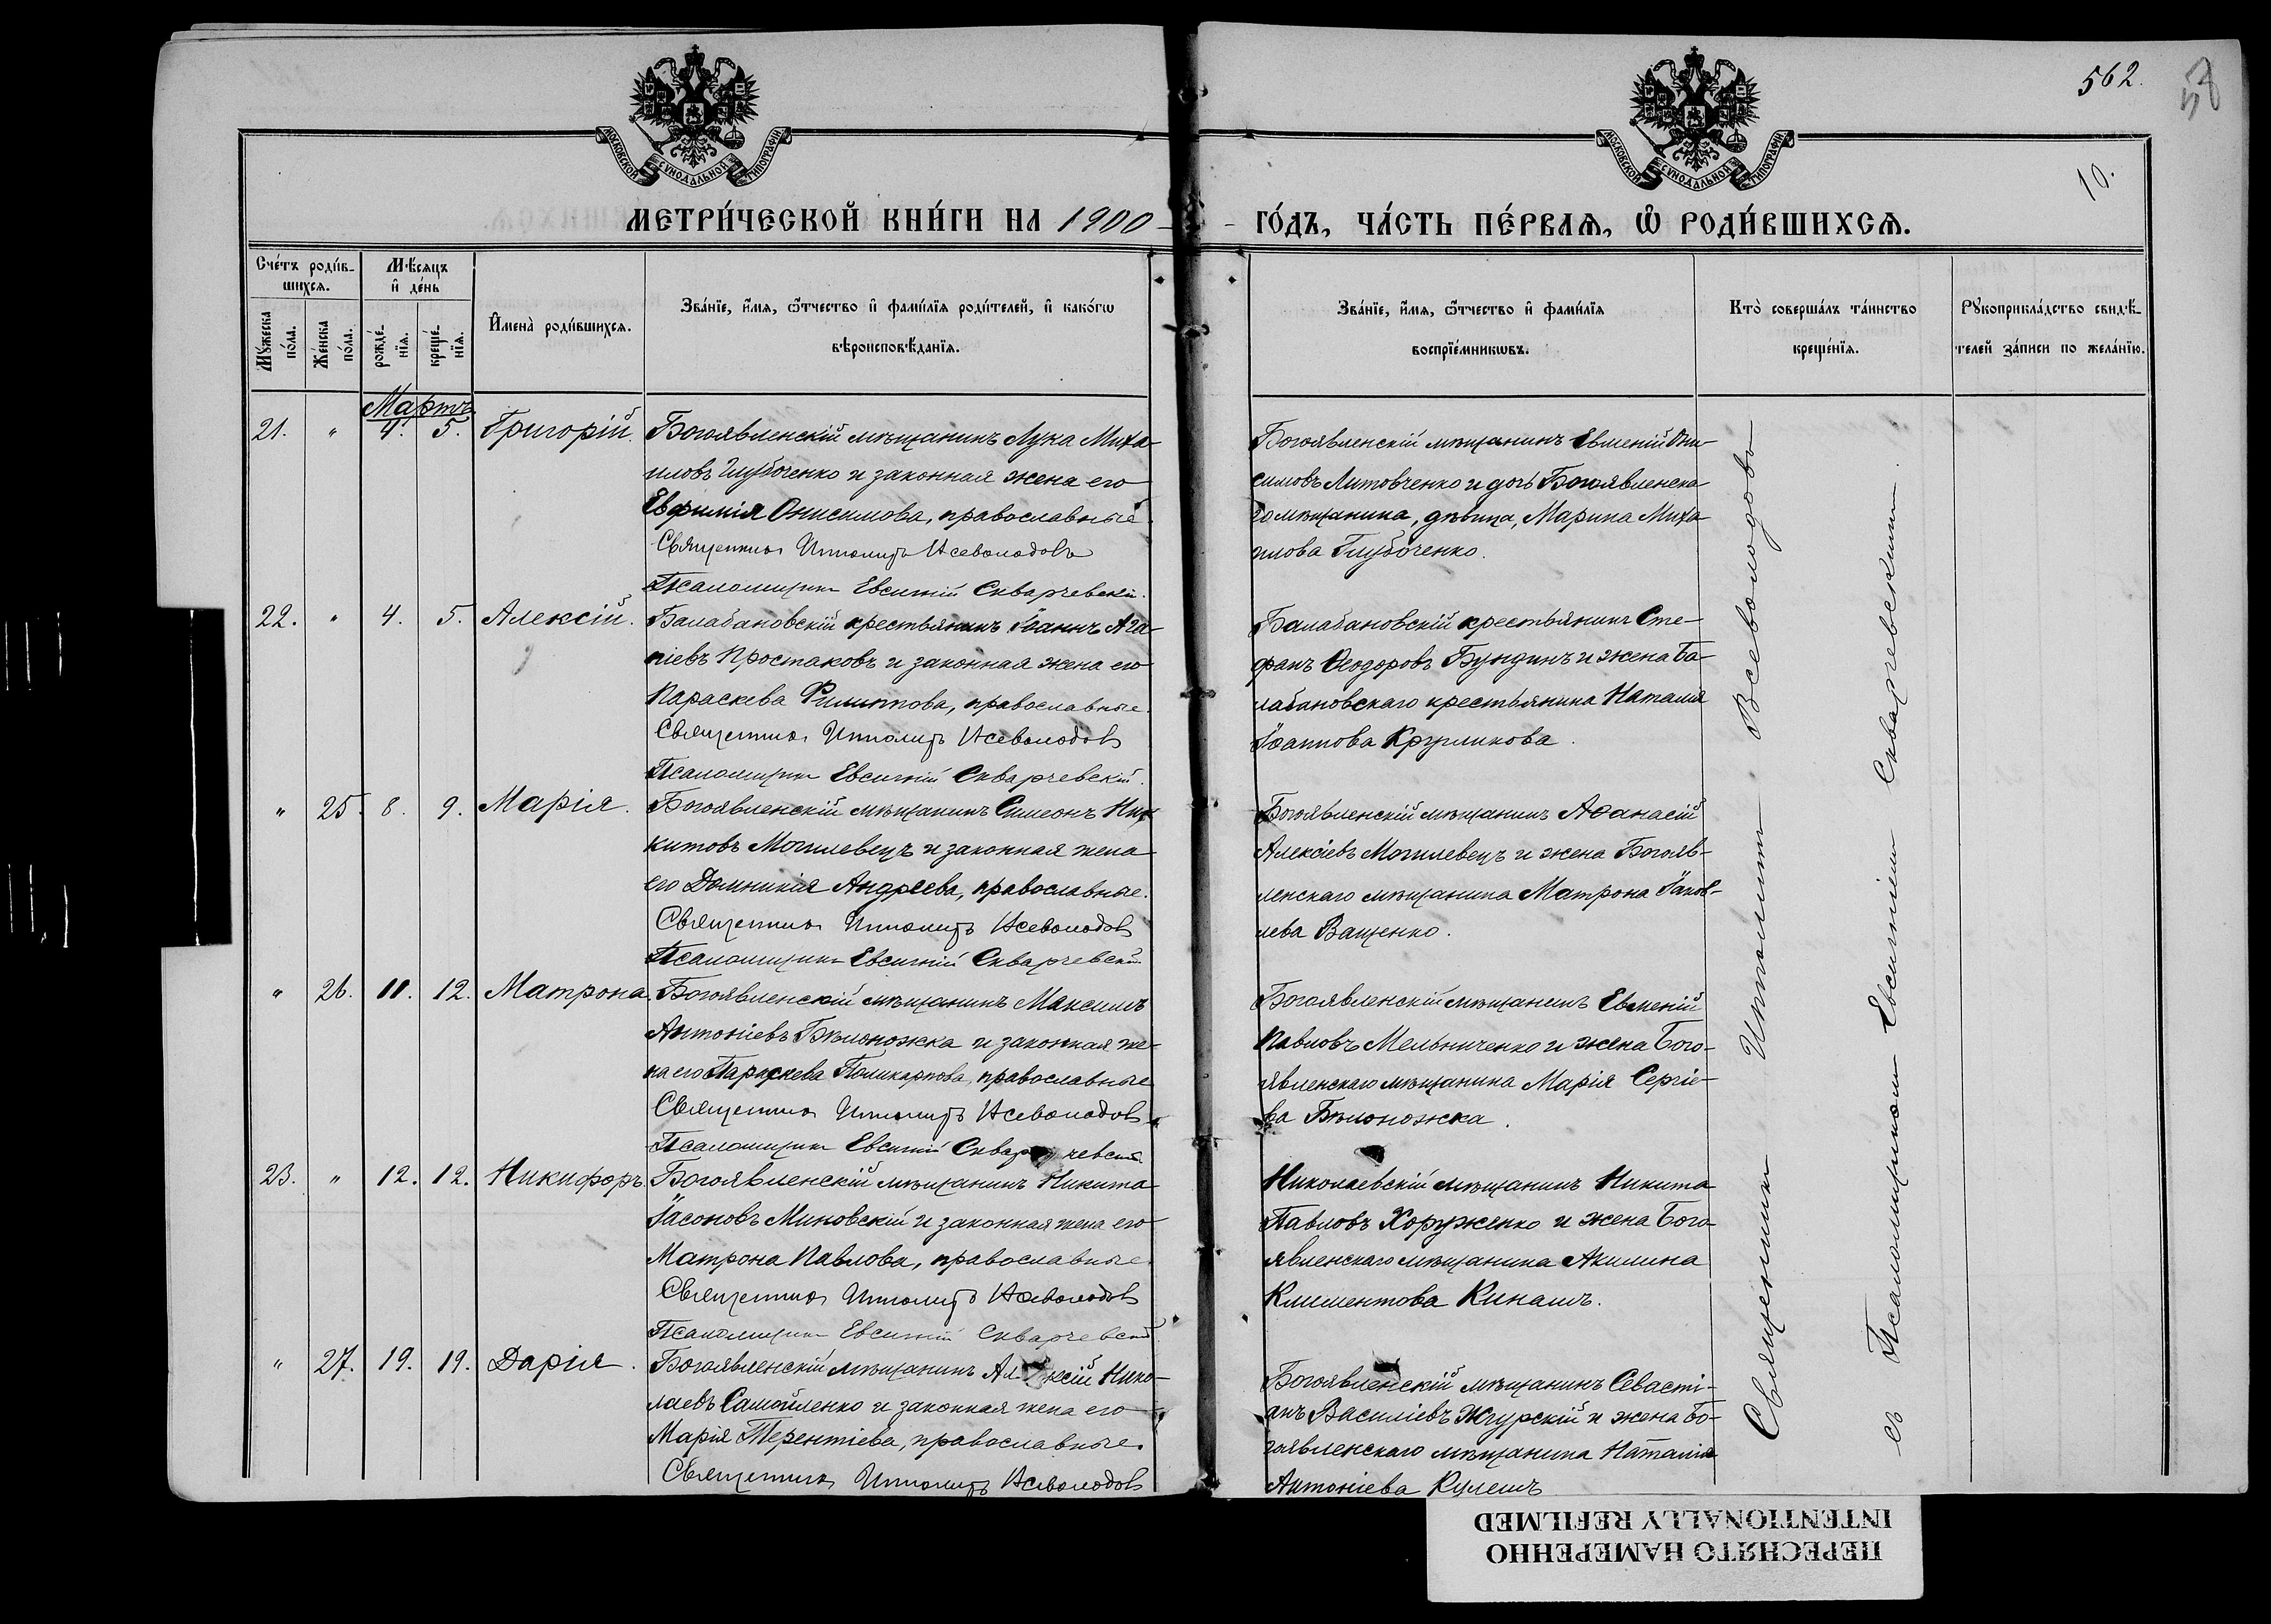 562.
58
10.
МОСКОВСКОЙ СѴНОДАЛЬНОЙ ТИПОГРАФІИ
МОСКОВСКОЙ СѴНОДАЛЬНОЙ ТИПОГРАФІИ
МЕТРИ́ЧЕСКОЙ КНИ́ГИ НА 1900
ГО́ДЪ, ЧА́СТЬ ПЕ́РВАѦ, Ѽ РОДИ́ВШИХСѦ.
Сче́тъ роди́в-
шихсѧ.
Мѣ́сѧцъ
и҆ де́нь
Мꙋ́жеска
по́ла.
Же́нска
по́ла.
рожде́-
нїѧ.
креще́-
нїѧ.
И҆мена̀ роди́вшихсѧ.
Зва́нїе, и҆́мѧ, ѻ҆́тчество и҆ фами́лїѧ роди́телей, и҆ како́гѡ
вѣроисповѣ́данїѧ.
Зва́нїе, и҆́мѧ, ѻ҆́тчество и҆ фами́лїѧ
воспрїе́мникѡвъ.
Кто̀ соверша́лъ та́инство
креще́нїѧ.
Рꙋкоприкла́дство свидѣ́-
телей за́писи по жела́нїю.
Мартъ
21. " 4. 5. Григорій.
Богоявленскій мѣщанинъ Лука Миха-
иловъ Глубоченко и законная жена его
Евфимія Онисимова, православные.
Священникъ Ипполитъ Всеволодовъ
Псаломщикъ Евсигній Скварчевскій.
Богоявленскій мѣщанинъ Евменій Они-
симовъ Литовченко и дочь Богоявленска-
го мѣщанина, дѣвица, Марина Миха-
илова Глубоченко.
22. " 4. 5. Алексій.
Балабановскій крестьянинъ Іоаннъ Ага-
піевъ Простаковъ и законная жена его
Параскева Филиппова, православные.
Священникъ Ипполитъ Всеволодовъ
Псаломщикъ Евсигній Скварчевскій.
Балабановскій крестьянинъ Сте-
фанъ Ѳеодоровъ Бундинъ и жена Ба-
лабановскаго крестьянина Наталія
Іоаннова Кругликова.
" 25. 8. 9. Марія.
Богоявленскій мѣщанинъ Симеонъ Ни-
китовъ Могилевецъ и законная жена
его Домникія Андреева, православные.
Священникъ Ипполитъ Всеволодовъ
Псаломщикъ Евсигній Скварчевскій
Богоявленскій мѣщанинъ Аѳанасій
Алексіевъ Могилевецъ и жена Богояв-
ленскаго мѣщанина Матрона Іаков-
лева Ващенко.
" 26. 11. 12. Матрона.
Богоявленскій мѣщанинъ Максимъ
Антоніевъ Бѣлоножка и законная же-
на его Параскева Поликарпова, православные
Священникъ Ипполитъ Всеволодовъ
Псаломщикъ Евсигній Скварчевскій
Богоявленскій мѣщанинъ Евменій
Павловъ Мельниченко и жена Бого-
явленскаго мѣщанина Марія Сергіе-
ва Бѣлоножка.
23. " 12. 12. Никифоръ.
Богоявленскій мѣщанинъ Никита
Іасоновъ Миновскій и законная жена его
Матрона Павлова, православные.
Священникъ Ипполитъ Всеволодовъ
Псаломщикъ Евсигній Скварчевскій
Николаевскій мѣщанинъ Никита
Павловъ Хоруженко и жена Бого-
явленскаго мѣщанина Акилина
Климентова Кинашъ.
" 27. 19. 19. Дарія.
Богоявленскій мѣщанинъ Алексій Нико-
лаевъ Самойленко и законная жена его
Марія Терентіева, православные.
Священникъ Ипполитъ Всеволодовъ
Богоявленскій мѣщанинъ Севасті-
анъ Василіевъ Жгурскій и жена Бо-
гоявленскаго мѣщанина Наталія
Антоніева Кулешъ
Священникъ Ипполитъ Всеволодовъ
съ Псаломщикомъ Евсигніемъ Скварчевскимъ.
ПЕРЕСНЯТО НАМЕРЕННО
INTENTIONALLY REFILMED